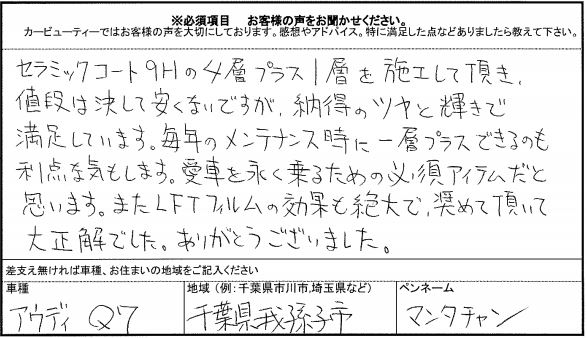 ※必須項目　お客様の声をお聞かせください。
カービューティーではお客様の声を大切にしております。感想やアドバイス。特に満足した点などありましたら教えて下さい。
セラミックコート9Hの4層プラス1層を施工して頂き、
値段は決して安くないですが、納得のツヤと輝きで
満足しています。毎年のメンテナンス時に一層プラスできるのも
利点な気もします。愛車を永く乗るための必須アイテムだと
思います。またLFTフィルムの効果も絶大で、奨めて頂いて
大正解でした。ありがとうございました。
差支え無ければ車種、お住まいの地域をご記入ください
車種　地域（例：千葉県市川市,埼玉県など）　ペンネーム
アウディ Q7　千葉県我孫子市　マンタチャン